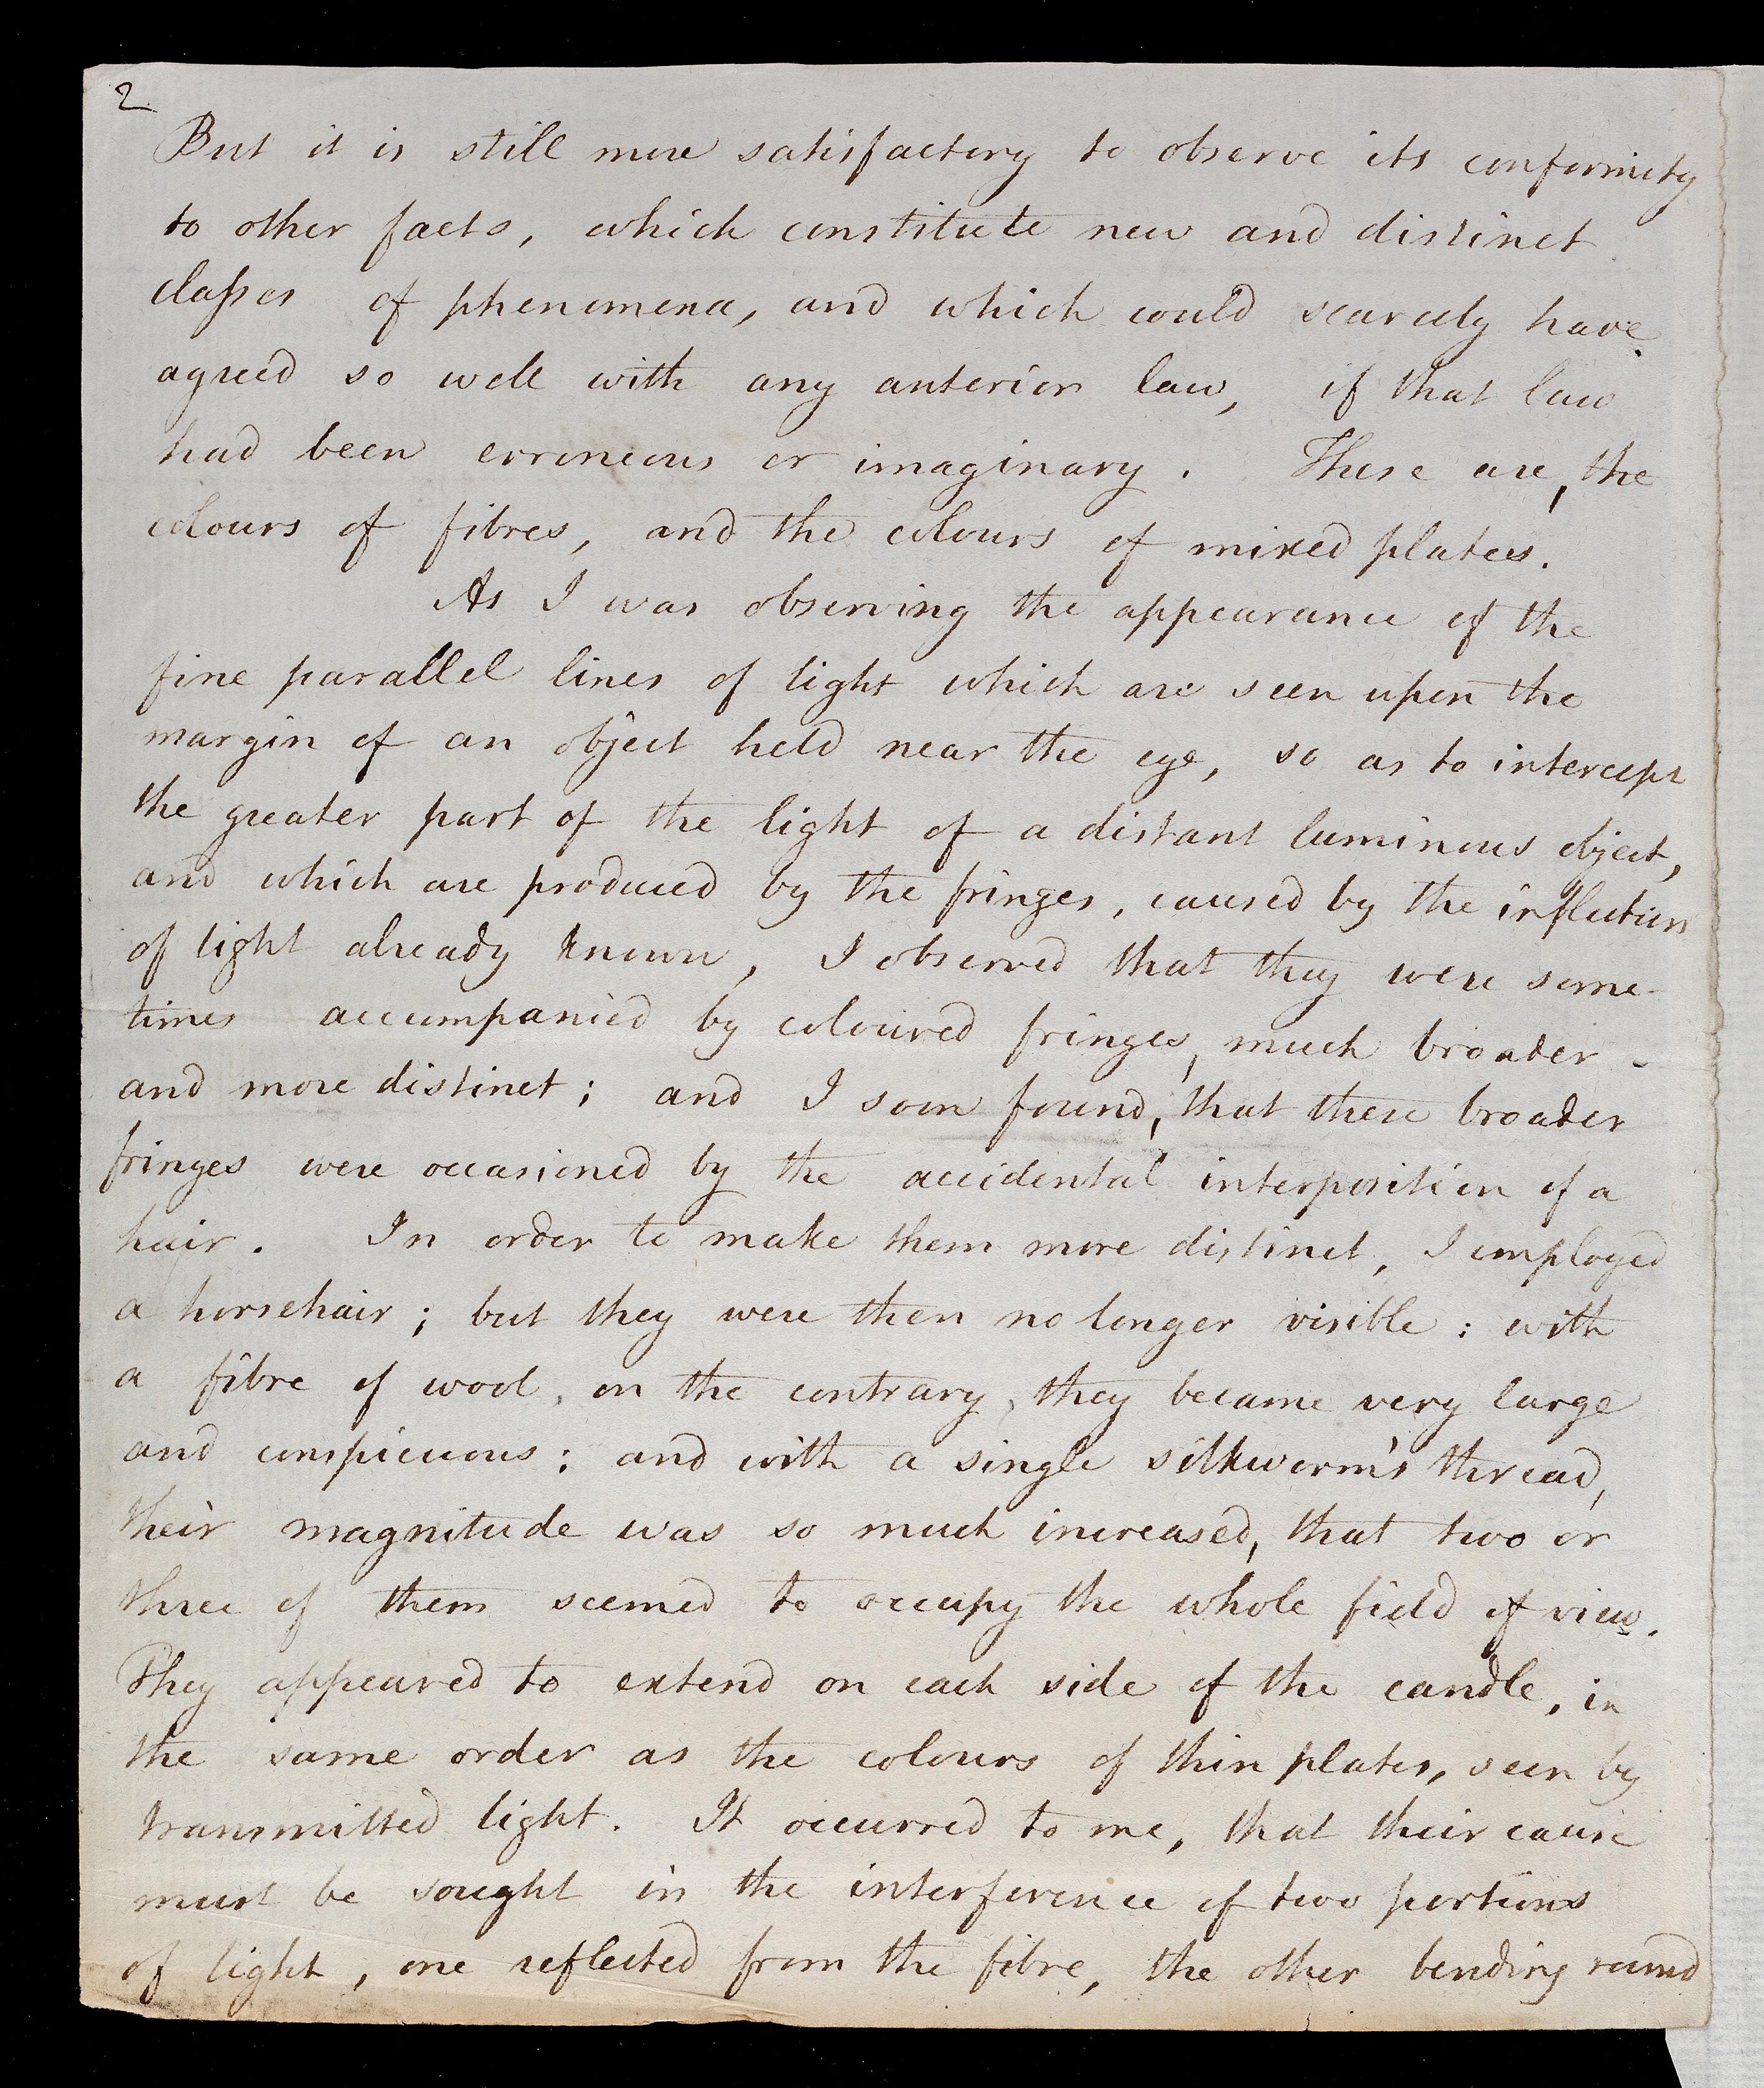 2
But it is still more satisfactory to observe its conformity
to other facts, which constitute new and distinct
classes of phenomena, and which could scarcely have
agreed so well with any anterior law, if that law
had been erroneous or imaginary. These are, the
colours of fibres, and the colours of mixed plates.
As I was observing the appearance of the
fine parallel lines of light which are seen upon the
margin of an object held near the eye, so as to intercept
the greater part of the light of a distant luminous object,
and which are produced by the fringes, caused by the inflection
of light already known, I observed that they were some-
times accompanied by coloured fringes, much broader
and more distinct; and I soon found, that these broader
fringes were occasioned by the accidental interposition of a
hair. In order to make them more distinct, I employed
a horsehair; but they were then no longer visible: with
a fibre of wool, on the contrary, they became very large
and conspicuous: and with a single silkworm's thread,
their magnitude was so much increased, that two or
three of them seemed to occupy the whole field of view.
They appeared to extend on each side of the candle, in
the same order as the colours of thin plates, seen by
transmitted light. It occurred to me, that their cause
must be sought in the interference of two portions
of light, one reflected from the fibre, the other bending round